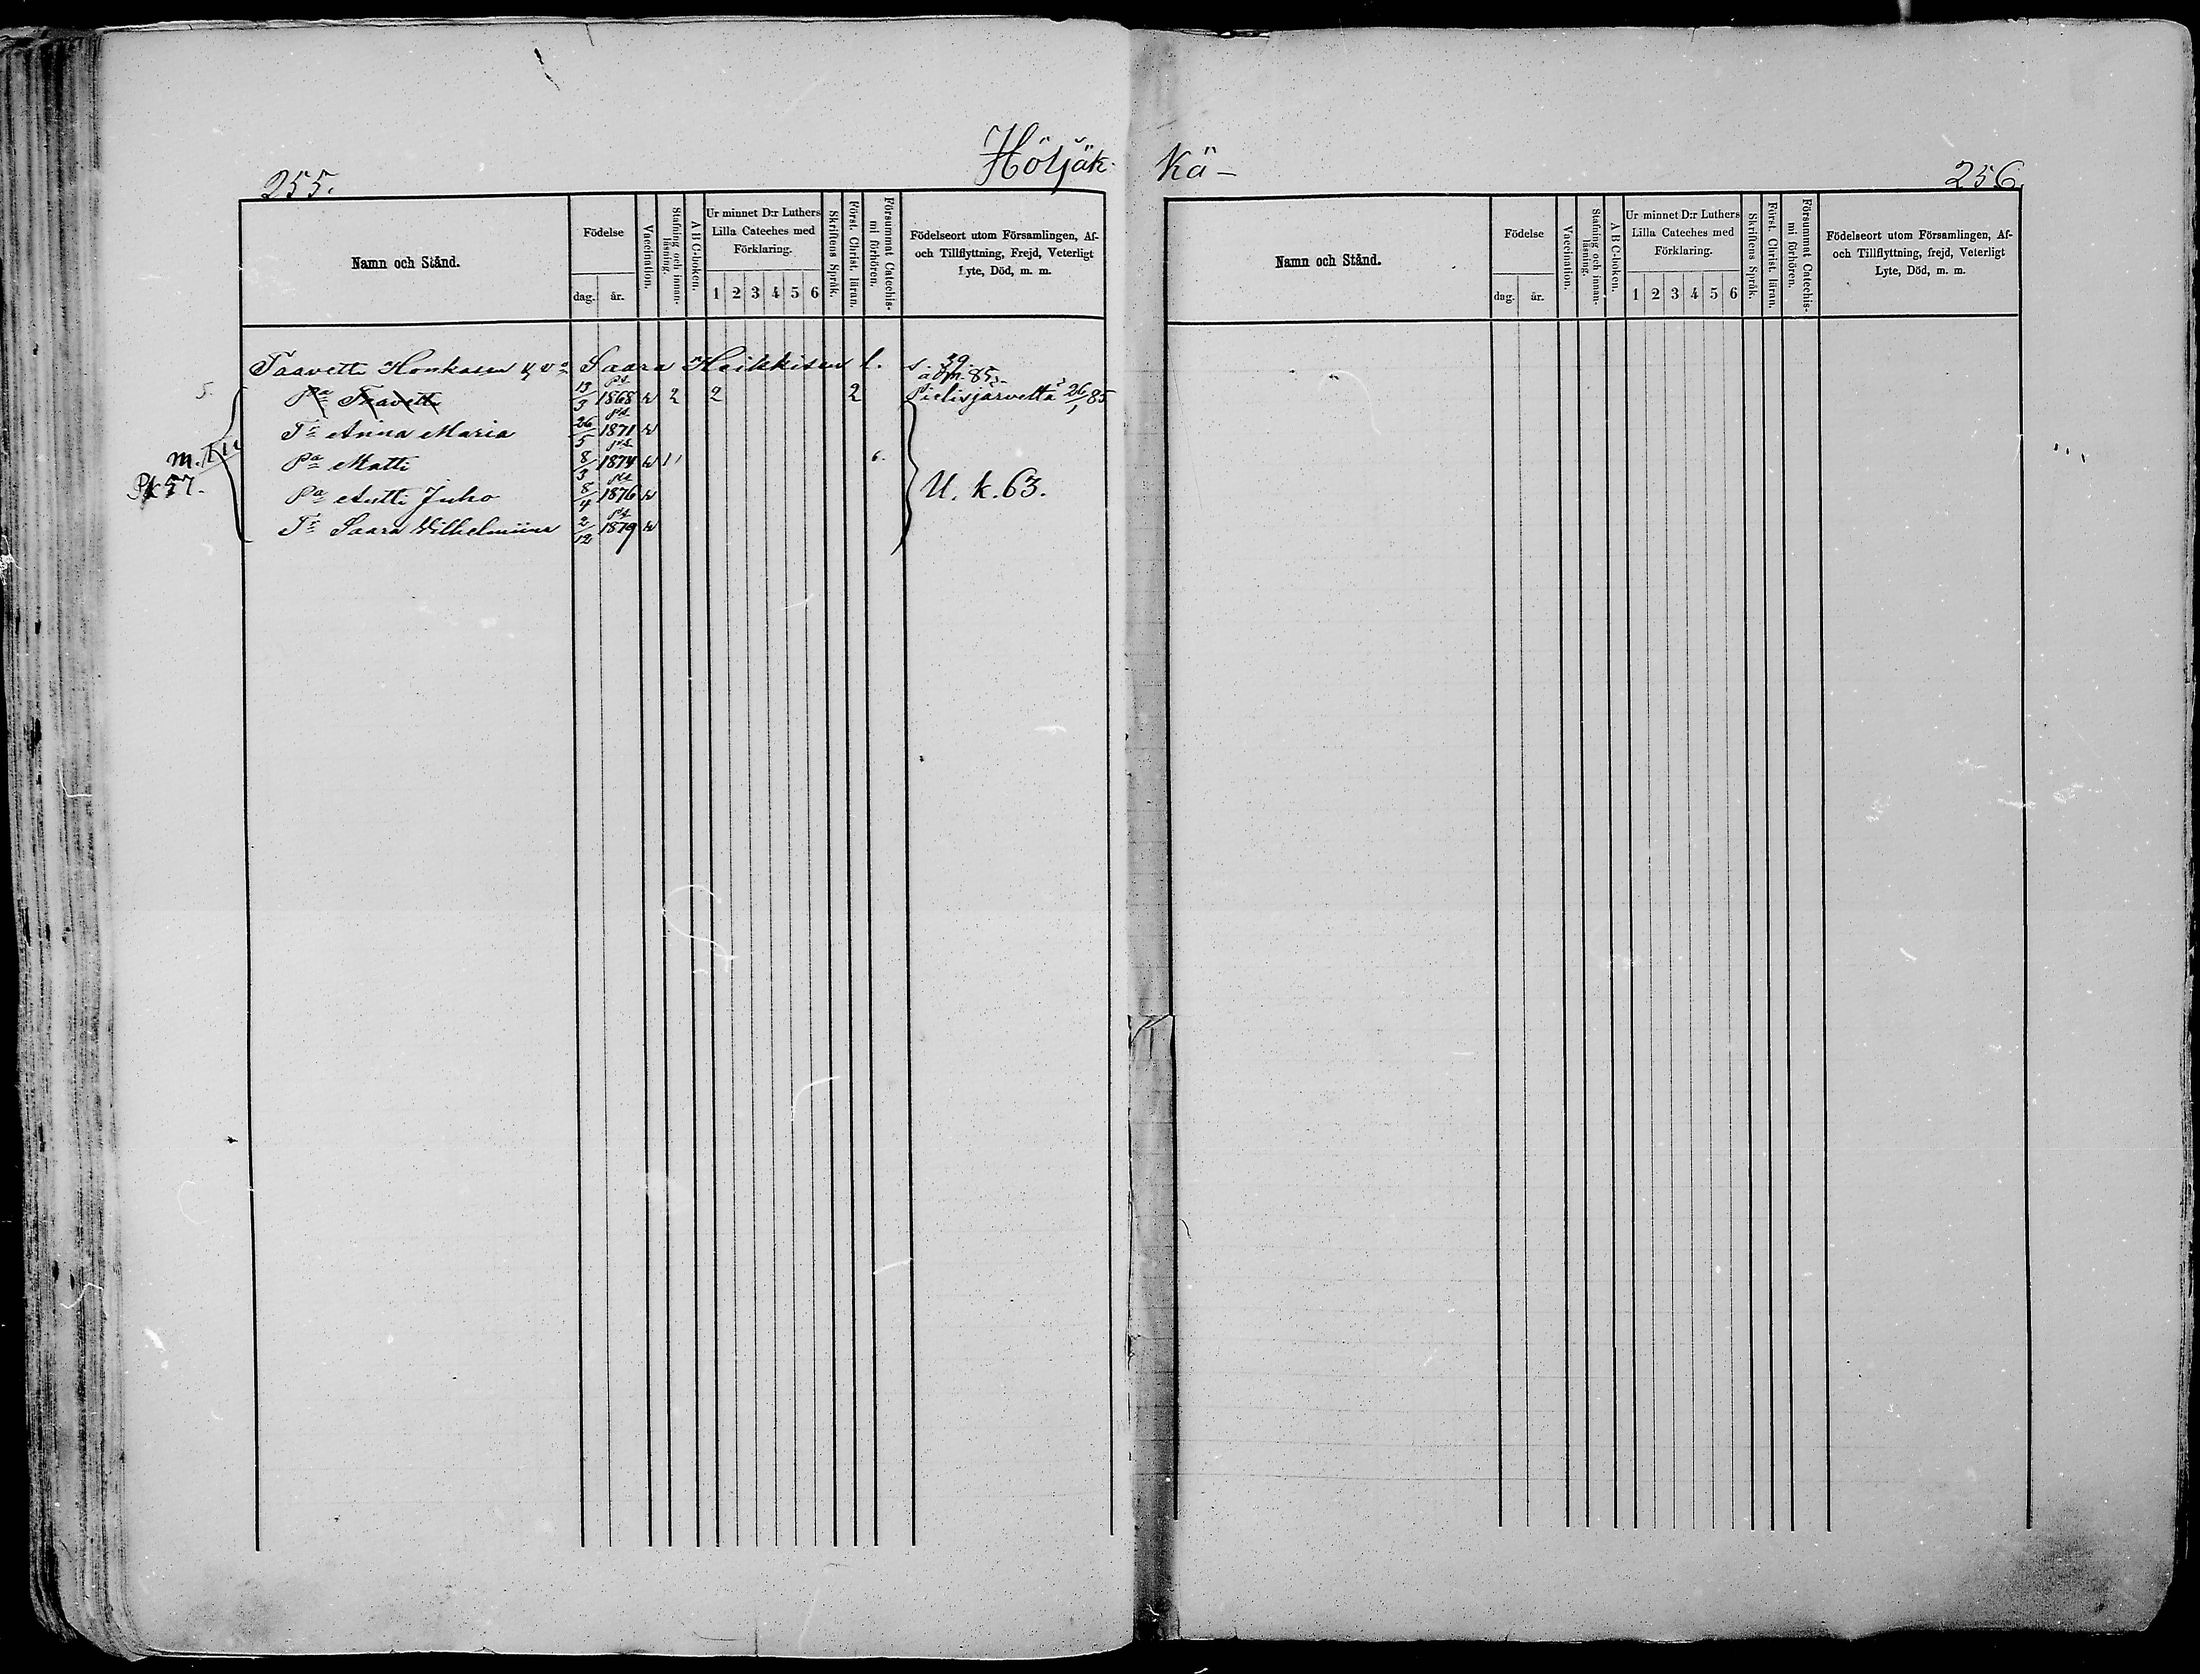 Hötjäk Kä-
255.
256.
Namn och Stånd.
Födelse
dag. år.
Vaccination.
Stafning och innanläsning.
A B C-boken.
Ur minnet D:r Luthers
Lilla Cateches med
Förklaring.
1 2 3 4 5 6
Skriftens Språk.
Först. Christ. läran.
Försummat Catechismi förhören.
Födelseort utom Församlingen, Af-
och Tillflyttning, Frejd, Veterligt
Lyte, Död, m. m.
Taavetti Honkasen Saara Heikkisen l.
Pa Taavetti 13/3 1868 v 2 2 2 Pielisjärveltä 26/1 85
Tr Anna Maria 26/5 1871 v
Pa Matti 8/3 1874 v
Pa Antti Juho 8/4 1876 v
Tr Saara Wilhelmiina 2/12 1879 v
m.
Pk 57.
U. k. 63.
Namn och Stånd.
Födelse
dag. år.
Vaccination.
Stafning och innanläsning.
A B C-boken.
Ur minnet D:r Luthers
Lilla Cateches med
Förklaring.
1 2 3 4 5 6
Skriftens Språk.
Först. Christ. läran.
Försummat Catechismi förhören.
Födelseort utom Församlingen, Af-
och Tillflyttning, frejd, Veterligt
Lyte, Död, m. m.